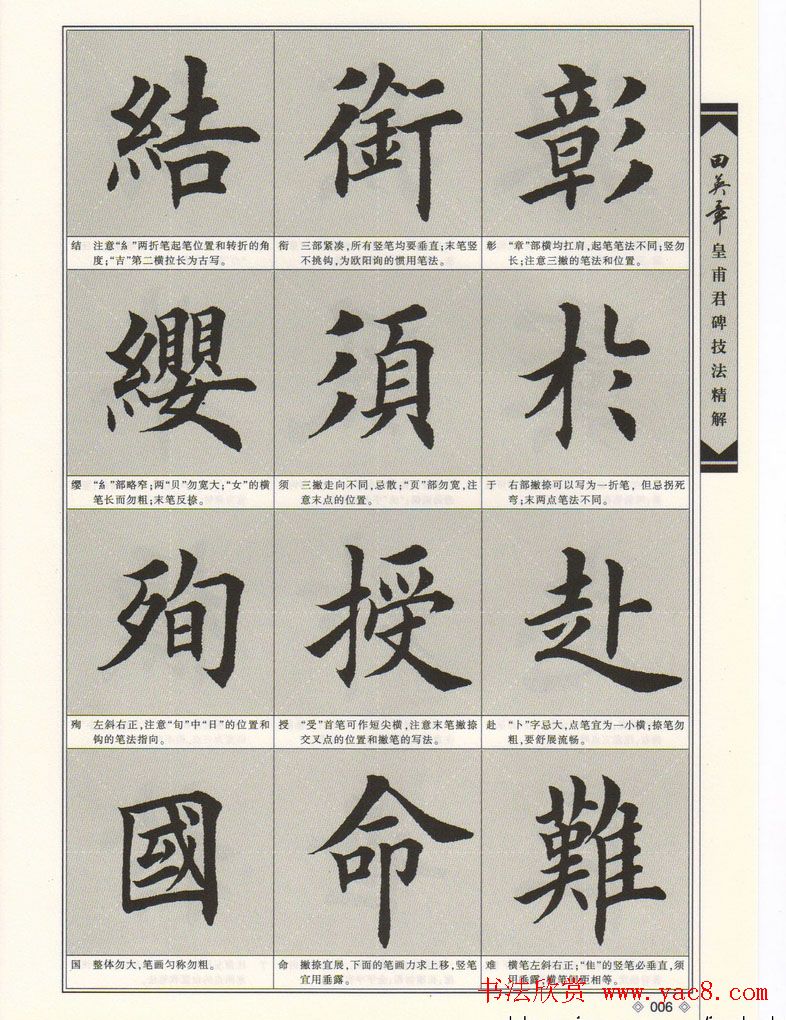 結
衔
彰
结 注意“糹”两折笔起笔位置和转折的角
度;“吉”第二横拉长为古写。
衔 三部紧凑,所有竖笔均要垂直;末笔竖
不挑钩,为欧阳询的惯用笔法。
彰 “章”部横均扛肩,起笔笔法不同;竖勿
长;注意三撇的笔法和位置。
纓
須
於
缨 “糹”部略窄;两“贝”勿宽大;“女”的横
笔长而勿粗;末笔反捺。
须 三撇走向不同,忌散;“页”部勿宽,注
意末点的位置。
于 右部撇捺可以写为一折笔,但忌拐死
弯;末两点笔法不同。
殉
授
赴
殉 左斜右正,注意“旬”中“日”的位置和
钩的笔法指向。
授 “受”首笔可作短尖横,注意末笔撇捺
交叉点的位置和撇笔的写法。
赴 “卜”字忌大,点笔宜为一小横;捺笔勿
粗,要舒展流畅。
國
命
難
国 整体勿大,笔画匀称勿粗。
命 撇捺宜展,下面的笔画力求上移,竖笔
宜用垂露。
难 横笔左斜右正;“隹”的竖笔必垂直,须
用垂露,横笔间距相等。
田英章
皇甫君碑技法精解
书法欣赏 www.yac8.com
006